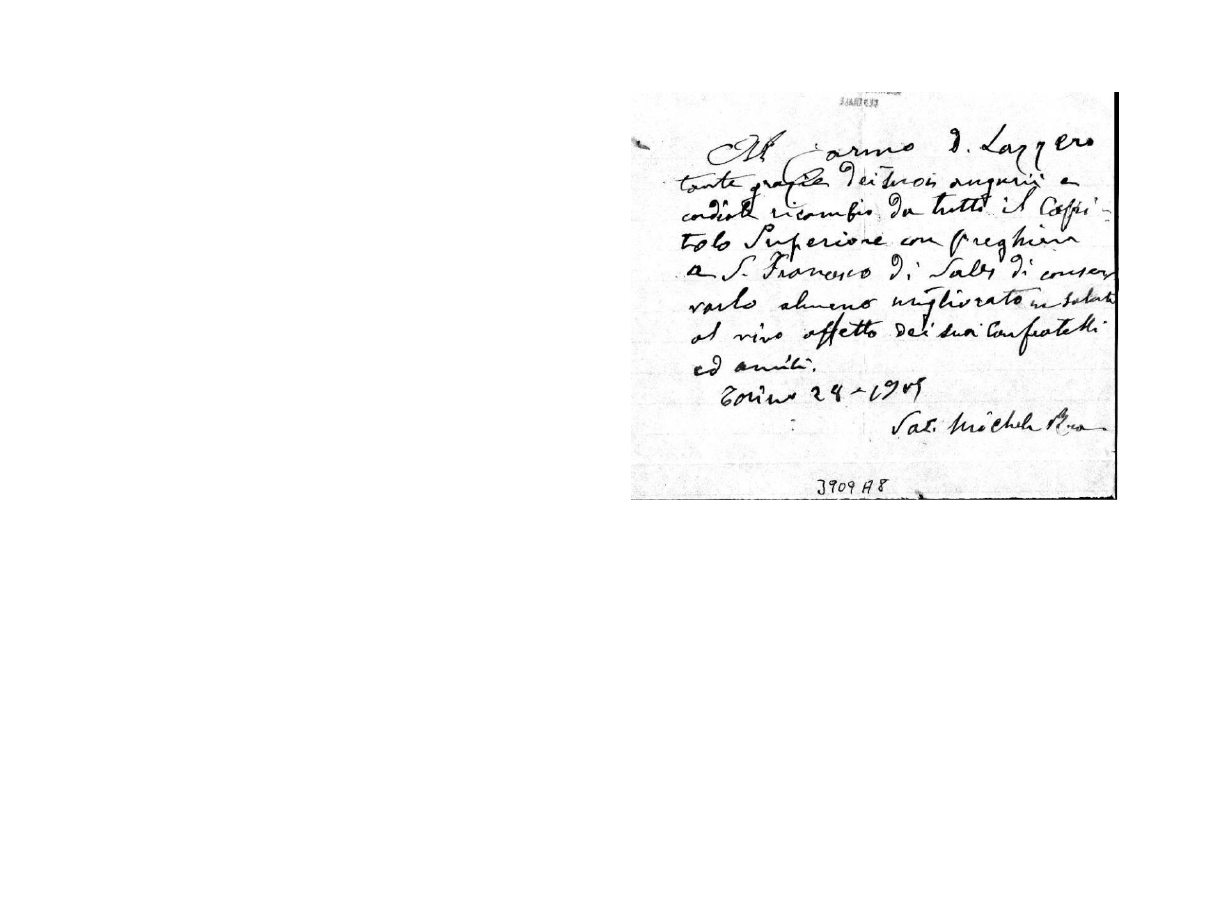 Al Carmo D. Lazzero
tante grazie dei suoi augurii e
cordiale ricambio da tutti il Capi-
tolo Superiore con preghiera
a S. Francesco di Sales di conser
varlo almeno migliorato in salute
al vivo affetto dei suoi Confratelli
ed amici.
Torino 28 - 1905
Sac. Michele Rua
3909 A 8